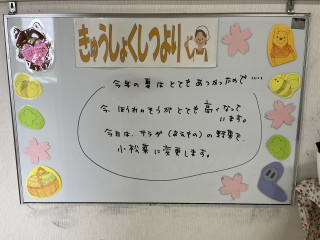 きゅうしょくしつより
今年の夏はとてもあつかったので……
今、ほうれんそうがとても高くなって
います。
今日は、サラダ(あえもの)の野菜を、
小松菜に変更します。